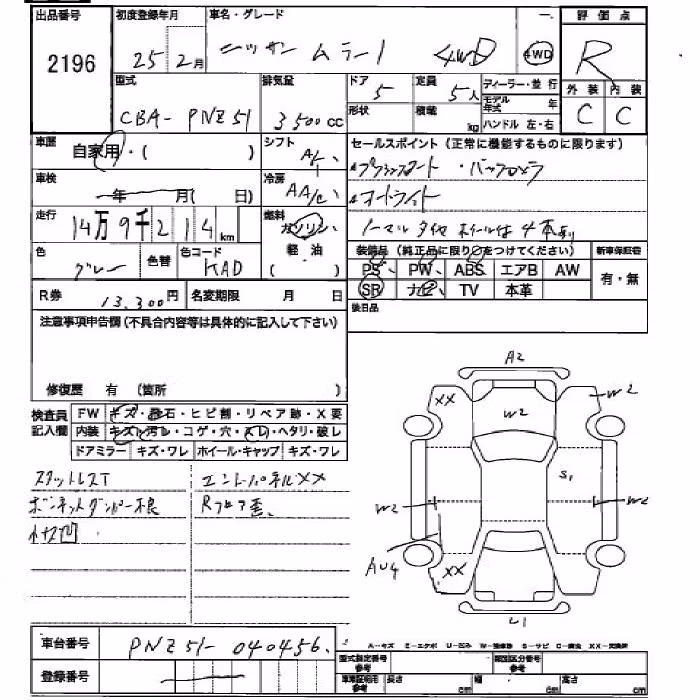 出品番号 初度登録年月 車名・グレード 評価点
2196 25年2月 ニッサン ムラーノ 4WD 4WD R
外装 内装
C C
型式 排気量 ドア 定員 ディーラー・並行
CBA-PNZ51 3500cc 5 5人 モデル年式 年
形状 積載 kg ハンドル 左・右
車歴 自家用・( ) シフト A/
セールスポイント(正常に機能するものに限ります)
・バックカメラ
車検 年 月( 日) 冷房 AA/C
オートライト
走行 14万9千214km 燃料 ガソリン
軽油
( )
ノーマルタイヤ ホイール付 4本あり
装備品(純正品に限り○をつけてください) 新車保証書
色 グレー 色替 色コード KAD
PS PW ABS エアB AW 有・無
SR ナビ TV 本革
R券 13,300円 名変期限 月 日
装日品
注意事項申告欄(不具合内容等は具体的に記入して下さい)
修復歴 有 (箇所 )
検査員記入欄 FW キズ・飛石・ヒビ割・リペア跡・X要
内装 キズ・汚レ・コゲ・穴・スレ・ヘタリ・破レ
ドアミラー キズ・ワレ ホイール・キャップ キズ・ワレ
スタットレスT エンドパネルXX
ボンネットダンパー不良 Rフロア歪
A2
XX W2 W2
S1
W2 W2
AU4
XX
L1
車台番号 PNZ51-040456
登録番号
A-キズ E-エクボ U-凹ミ W-補修跡 S-サビ C-腐食 XX-交換済
型式指定番号 参考 類別区分番号 参考
車庫証明用 参考 長さ cm 幅 cm 高さ cm